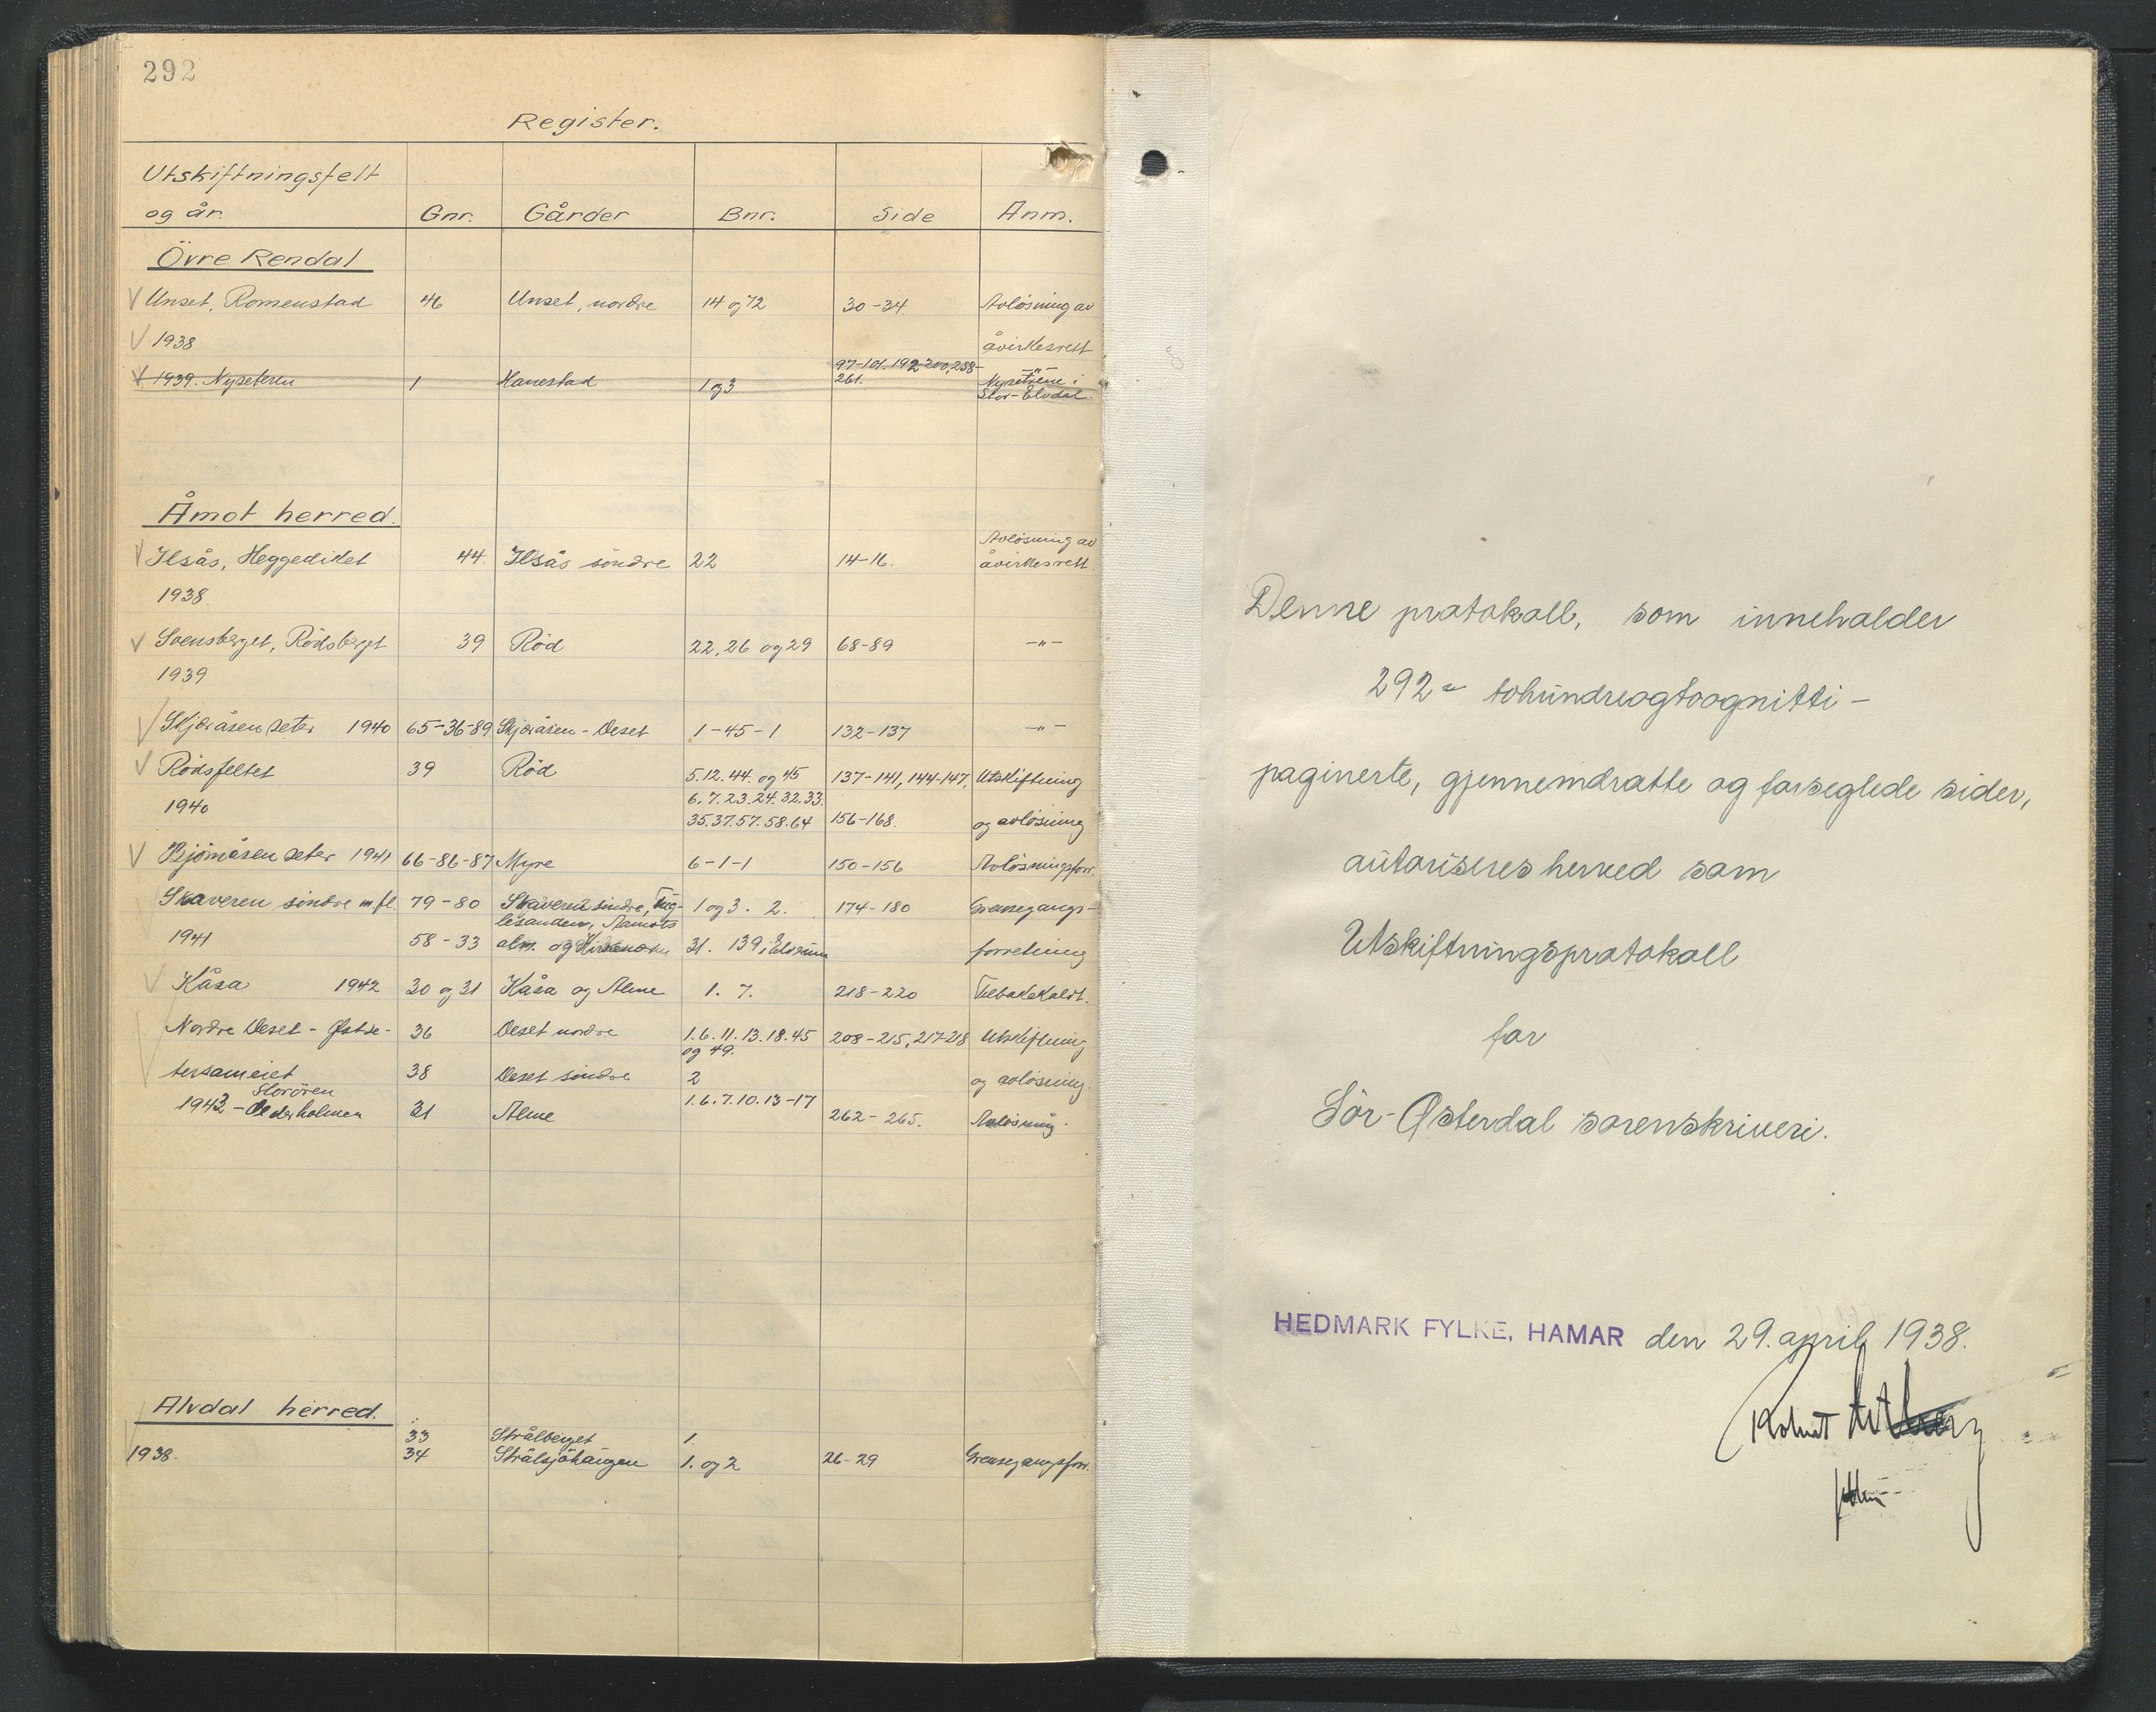 292
Register.
Utskiftningsfelt
og år. Gnr. Gårder Bnr. Side Anm.
Övre Rendal
Unset, Romenstad 46 Unset, nordre 14 og 72 30-34 Avlösning av
1938 åvirkesrett
1939. Nyseteren 1 Hanestad 1 og 3 97-101. 192, 200, 258-261. -"- Nysetrene i Stor-Elvdal.
Åmot herred.
Ilsås, Heggediket 44 Ilsås söndre 22 14-16. Avlösning av åvirkesrett.
1938
Svensberget, Rödsberget 39 Röd 22, 26 og 29 68-89 -"-
1939
Skjæråsen seter 1940 65-36-89 Skjæråsen - Deset 1-45-1 132-137 -"-
Rödsfeltet 39 Röd 5.12.44. og 45 137-141, 144-147, Utskiftning
6.7.23.24.32.33.
1940 35.37.57.58.64 156-168. og avlösning
Björnåsen seter 1941 66-86-87 Myre 6-1-1 150-156 Avlösningsforr.
Skaveren söndre m.fl. 79-80 Skaveren söndre, 1 og 3. 2. 174-180 Grensegangs-
1941 58-33 alm. og 31. 139 i Elverum forretning
Kåsa 1942 30 og 31 Kåsa og Alme 1. 7. 218-220 Tilbakekaldt.
Nordre Deset - Østse- 36 Deset nordre 1.6.11.13.18.45 og 49. 208-215, 217-218 Utskiftning
tersameiet 38 Deset söndre 2 og avlösning.
Storören
1943 - Olderholmen 31 Alme 1.6.7.10.13-17 262-265. Avlösning.
Alvdal herred.
33 Strålberget 1.
1938. 34 Strålsjöhaugen 1. og 2 26-29 Grensegangsforr.
Denne protokoll, som inneholder
292 - tohundreogtoognitti -
paginerte, gjennemdratte og forseglede sider,
autoriseres herved som
Utskiftningsprotokoll
for
Sör-Østerdal sorenskriveri.
HEDMARK FYLKE, HAMAR den 29. april 1938.